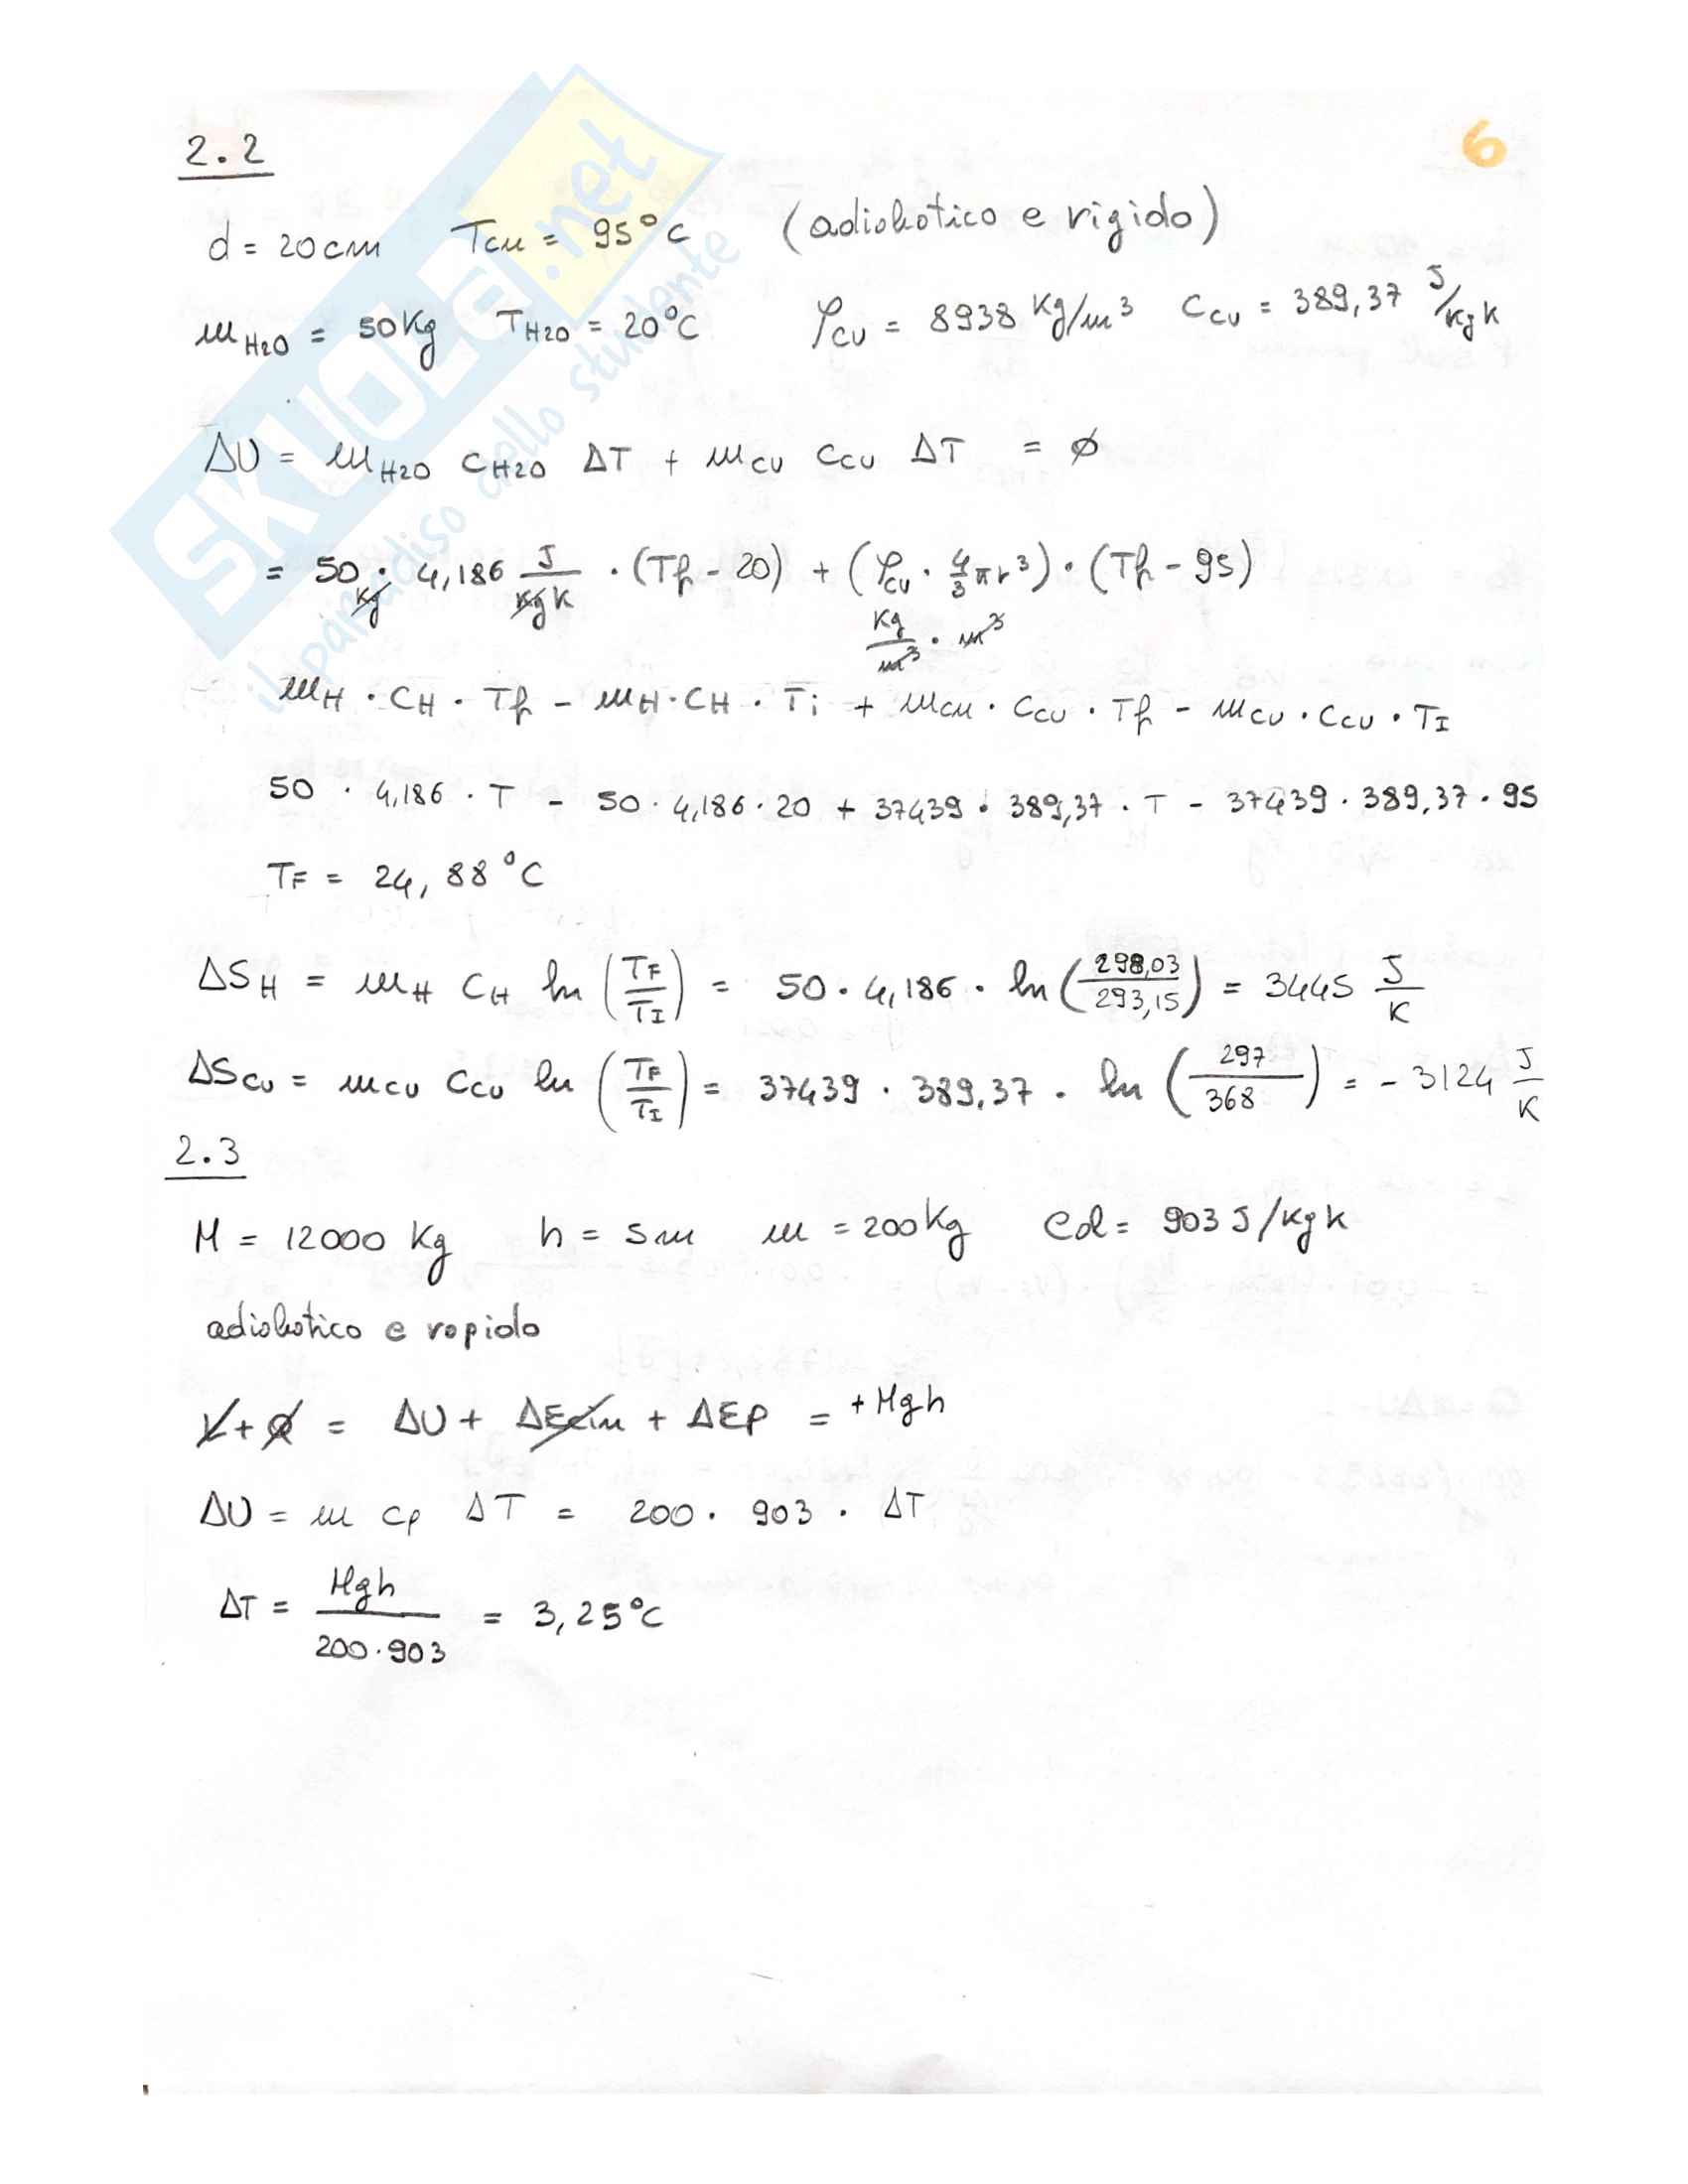 2.2
6
d = 20cm Tcu = 95°C (adiabatico e rigido)
mH2O = 50Kg TH2O = 20°C ρcu = 8938 Kg/m³ Ccu = 389,37 J/Kg K
ΔU = mH2O CH2O ΔT + mcu Ccu ΔT = ∅
= 50 Kg · 4,186 J/Kg K · (Tf - 20) + (ρcu · 4/3 π r³) · (Tf - 95)
Kg/m³ · m³
mH · CH · Tf - mH · CH · Ti + mcu · Ccu · Tf - mcu · Ccu · TI
50 · 4,186 · T - 50 · 4,186 · 20 + 37439 · 389,37 · T - 37439 · 389,37 · 95
TF = 24,88 °C
ΔSH = mH CH ln (TF/TI) = 50 · 4,186 · ln (298,03/293,15) = 3445 J/K
ΔScu = mcu Ccu ln (TF/TI) = 37439 · 389,37 · ln (297/368) = - 3124 J/K
2.3
M = 12000 Kg h = 5m m = 200Kg Cal = 903 J/Kg K
adiabatico e rapido
L + Q = ΔU + ΔEcin + ΔEp = + Mgh
ΔU = m cp ΔT = 200 · 903 · ΔT
ΔT = Mgh / 200 · 903 = 3,25°C
SKUOLA.net
il paradiso dello studente